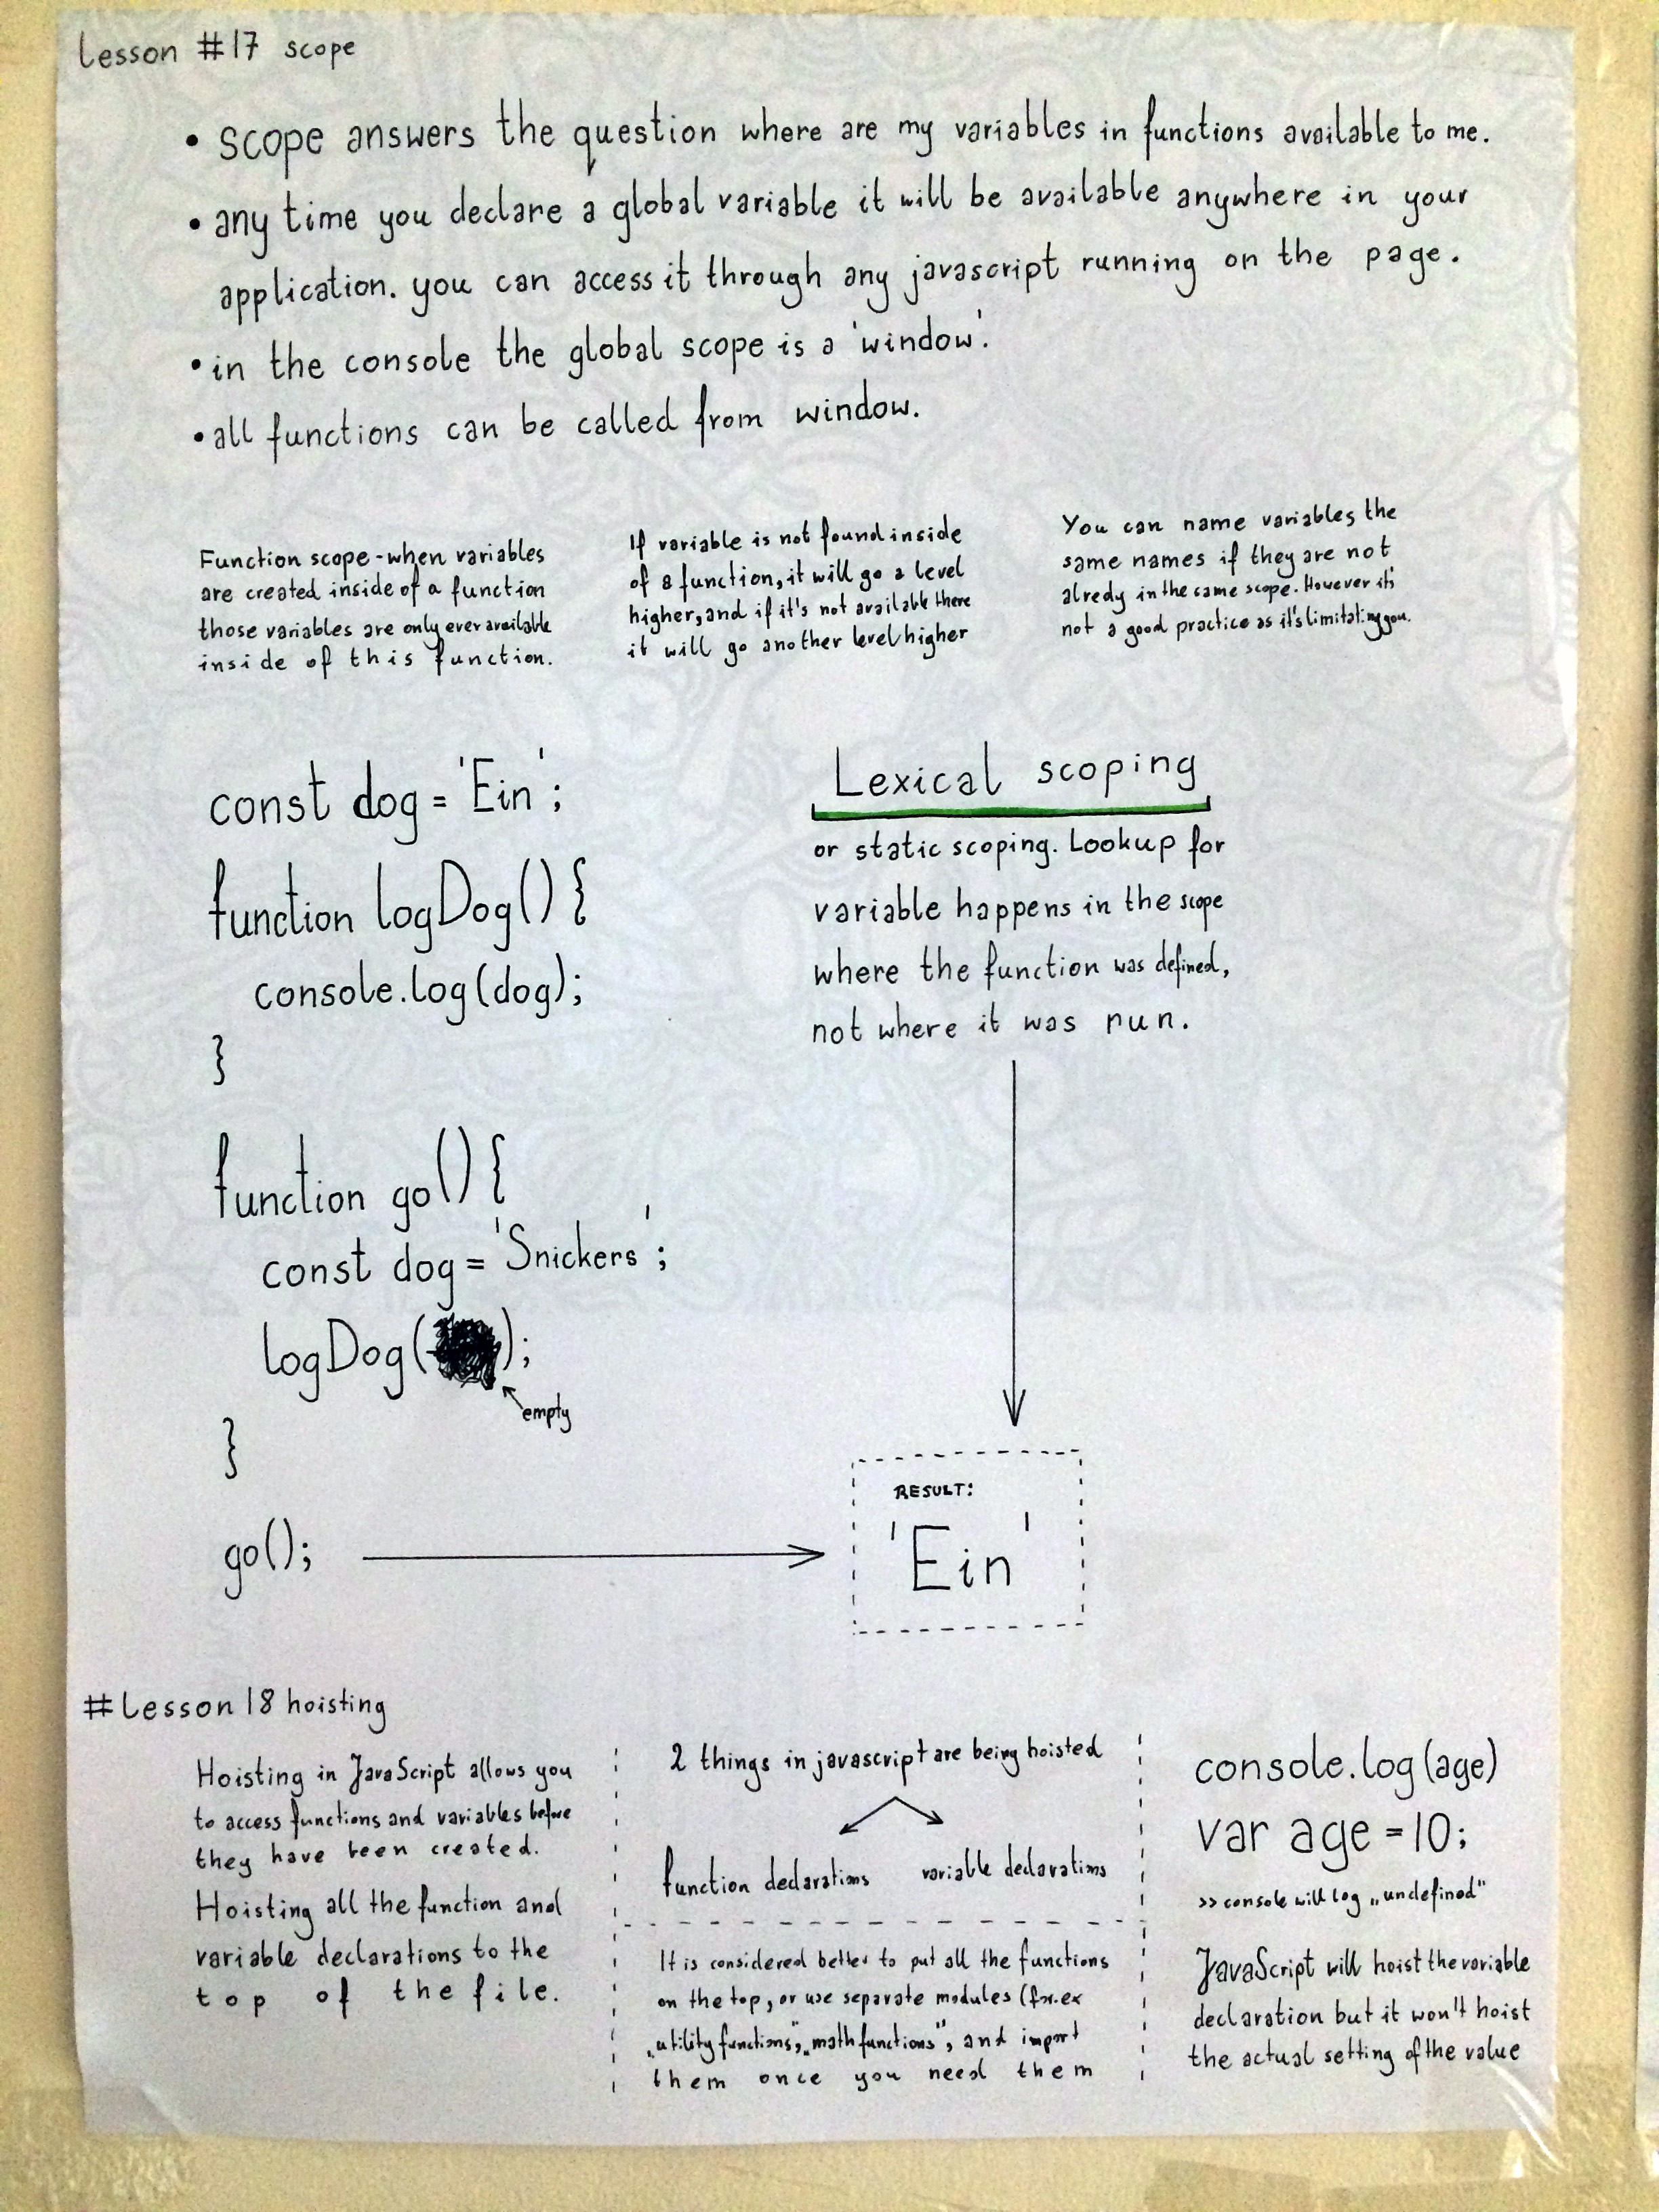 Lesson #17 scope
• scope answers the question where are my variables in functions available to me.
• any time you declare a global variable it will be available anywhere in your
application. you can access it through any javascript running on the page.
• in the console the global scope is a 'window'.
• all functions can be called from window.
Function scope - when variables
are created inside of a function
those variables are only ever available
inside of this function.
If variable is not found inside
of a function, it will go a level
higher, and if it's not available there
it will go another level higher
You can name variables the
same names if they are not
alredy in the same scope. However it's
not a good practice as it's limitating you.
const dog = 'Ein';
function logDog() {
console.log(dog);
}
function go() {
const dog = 'Snickers';
logDog( );
empty
}
go();
Lexical scoping
or static scoping. Lookup for
variable happens in the scope
where the function was defined,
not where it was run.
RESULT:
'Ein'
# Lesson 18 hoisting
Hoisting in JavaScript allows you
to access functions and variables before
they have been created.
Hoisting all the function and
variable declarations to the
top of the file.
2 things in javascript are being hoisted
function declarations variable declarations
It is considered better to put all the functions
on the top, or use separate modules (for.ex
„utility functions", „math functions", and import
them once you need them
console.log(age)
var age = 10;
>> console will log „undefined"
JavaScript will hoist the variable
declaration but it won't hoist
the actual setting of the value